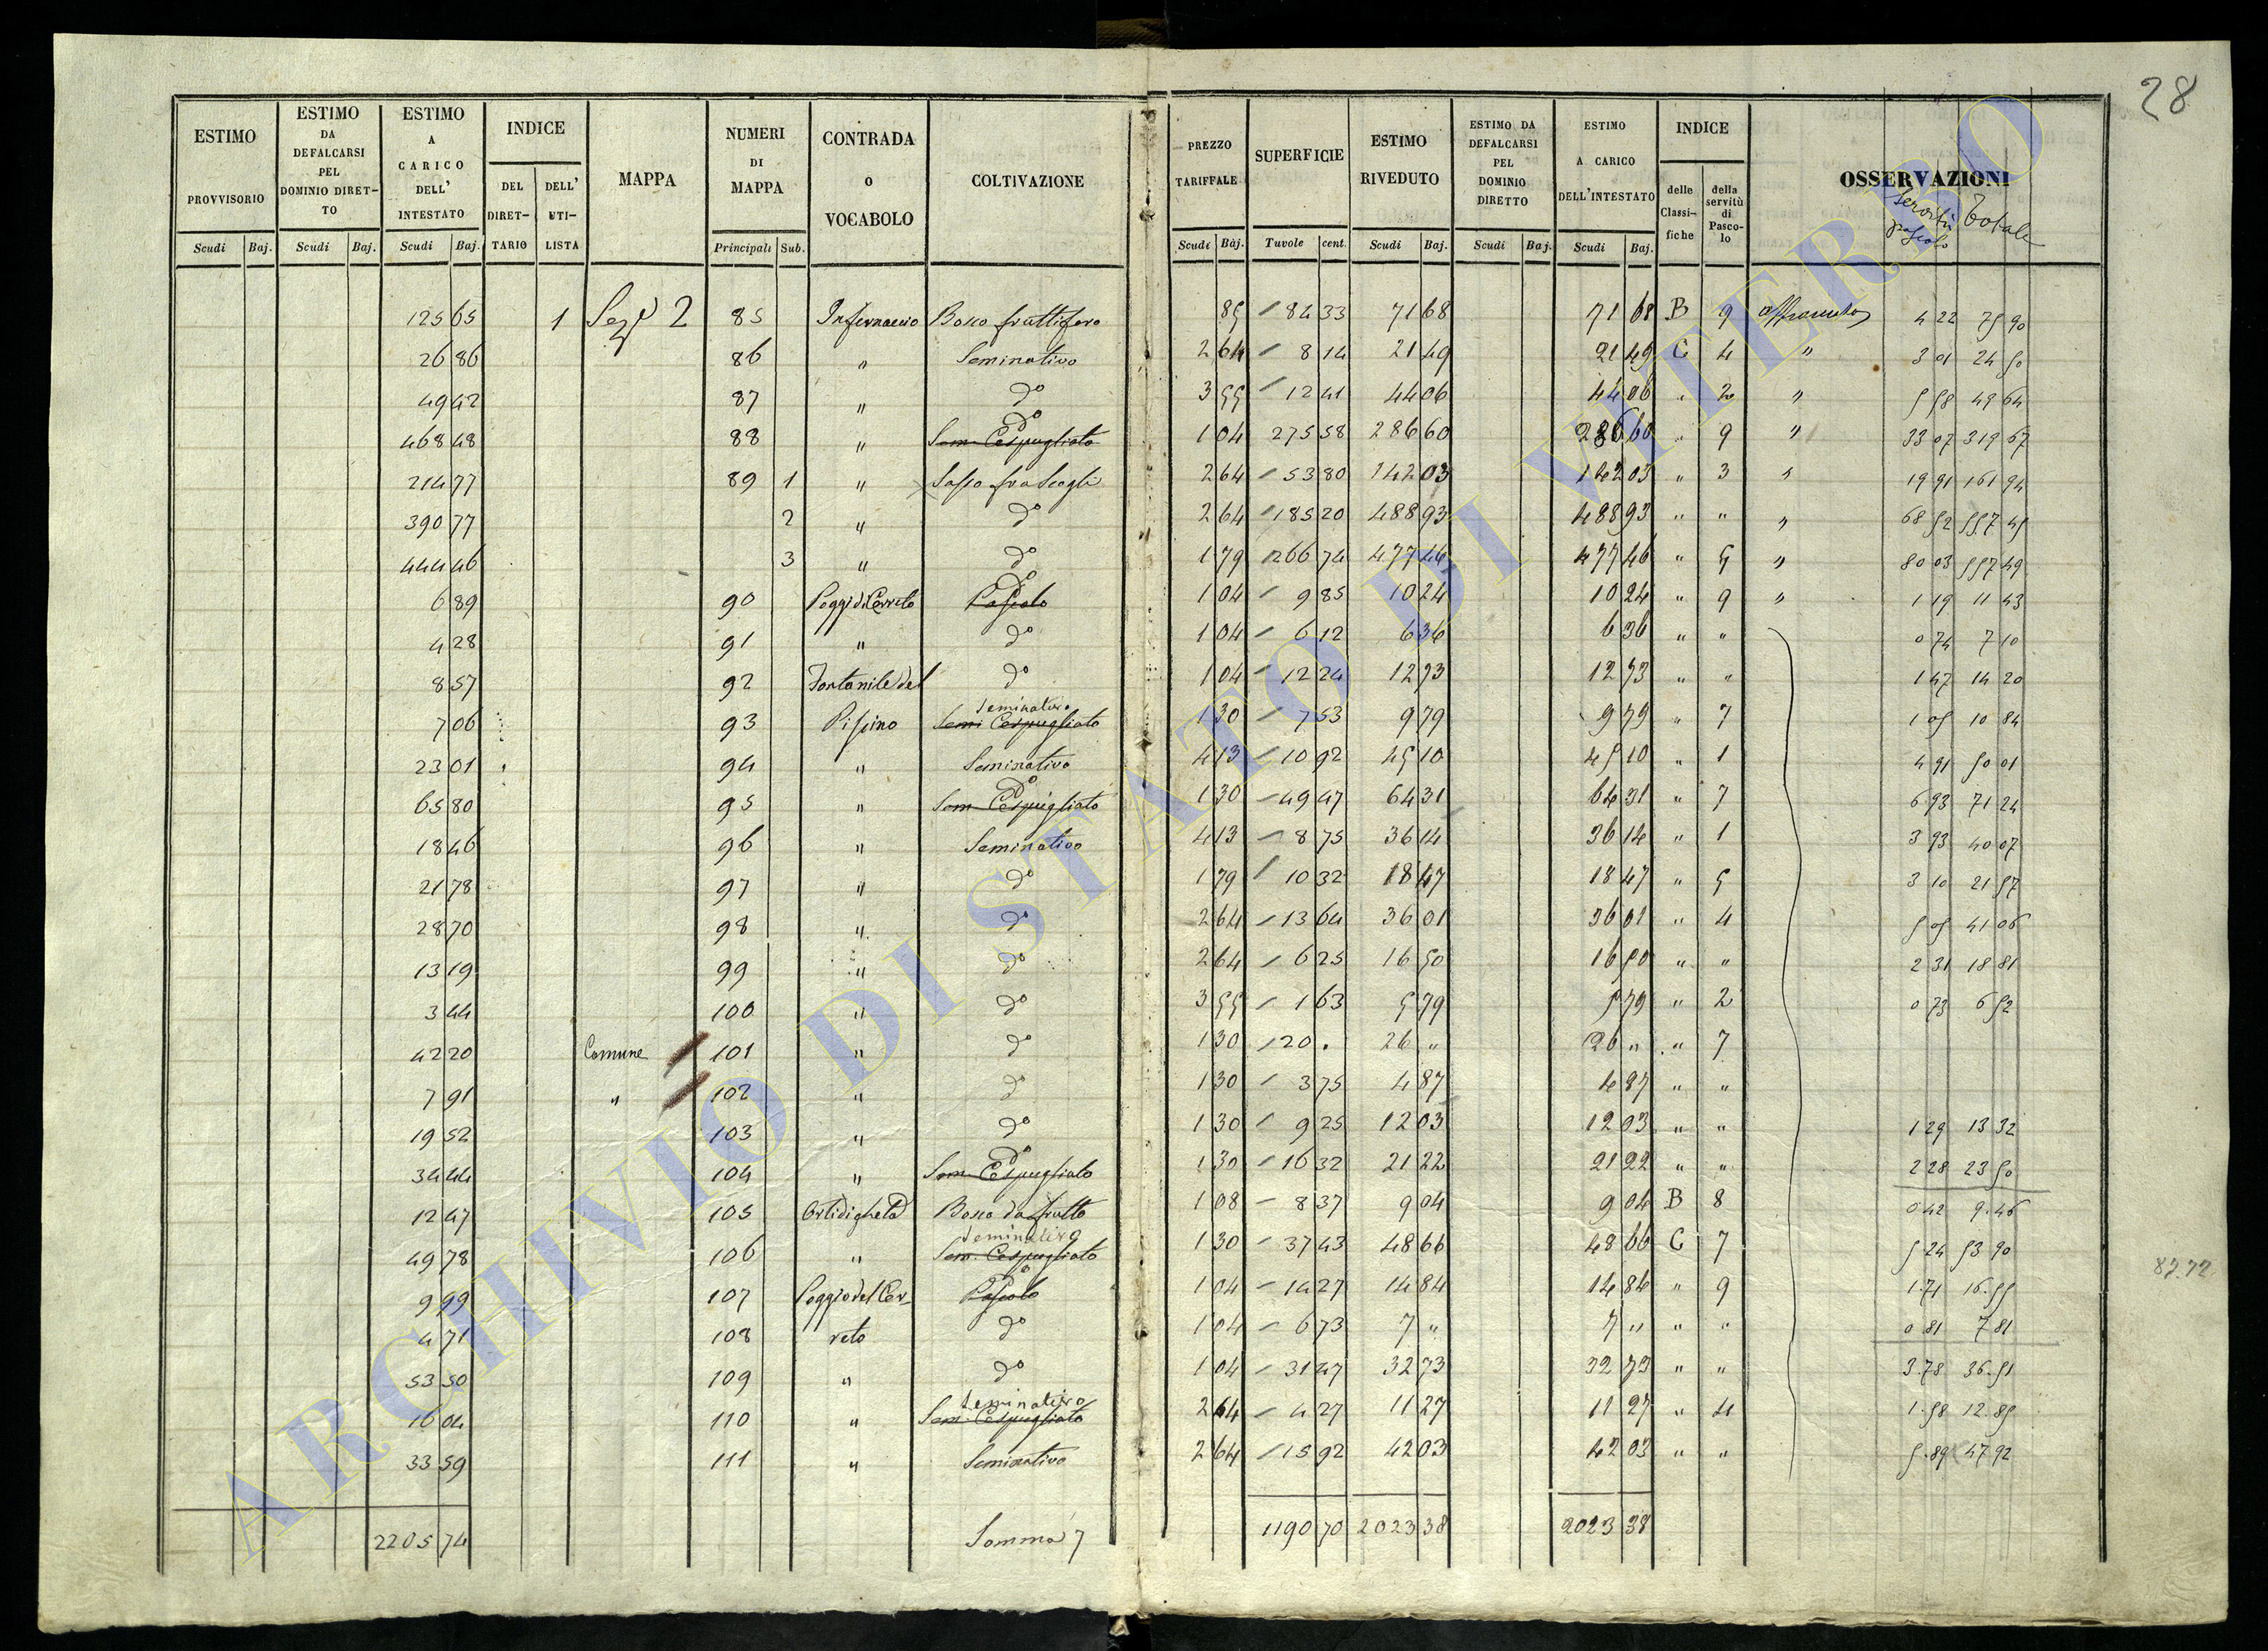 28
ESTIMO PROVVISORIO Scudi Baj.
ESTIMO DA DEFALCARSI PEL DOMINIO DIRET-TO Scudi Baj.
ESTIMO A CARICO DELL' INTESTATO Scudi Baj.
INDICE DEL DIRET-TARIO DELL' UTI-LISTA
MAPPA
NUMERI DI MAPPA Principali Sub.
CONTRADA O VOCABOLO
COLTIVAZIONE
PREZZO TARIFFALE Scudi Baj.
SUPERFICIE Tavole cent.
ESTIMO RIVEDUTO Scudi Baj.
ESTIMO DA DEFALCARSI PEL DOMINIO DIRETTO Scudi Baj.
ESTIMO A CARICO DELL'INTESTATO Scudi Baj.
INDICE delle Classi-fiche della servitù di Pasco-lo
OSSERVAZIONI
Servitù pascolo Totale
125 65 1 Sez.e 2 85 Infernaccio Bosco fruttifero 85 84 33 71 68 71 68 B 9 affrancato 4 22 75 90
26 86 86 " Seminativo 2 64 8 14 21 49 21 49 C 4 " 3 01 24 50
49 42 87 " do 3 55 12 41 44 06 44 06 " 2 " 5 58 49 64
468 48 88 " do Sem. Cespugliato 1 04 275 58 286 60 286 60 " 9 " 33 07 319 67
214 77 89 1 " Sasso fra Scogli 2 64 53 80 142 03 142 03 " 3 " 19 91 161 94
390 77 2 " do 2 64 185 20 488 93 488 93 " " " 68 52 557 45
444 46 3 " do 1 79 266 74 477 46 477 46 " 5 " 80 03 557 49
6 89 90 Poggi di Cerreto do Pascolo 1 04 9 85 10 24 10 24 " 9 " 1 19 11 43
4 28 91 " do 1 04 6 12 6 36 6 36 " " 0 74 7 10
8 57 92 Fontanile del do 1 04 12 24 12 73 12 73 " " 1 47 14 20
7 06 93 Piscino Seminativo Semi Cespugliato 1 30 7 53 9 79 9 79 " 7 1 05 10 84
23 01 94 " Seminativo 4 13 10 92 45 10 45 10 " 1 4 91 50 01
65 80 95 " do Sem. Cespugliato 1 30 49 47 64 31 64 31 " 7 6 93 71 24
18 46 96 " Seminativo 4 13 8 75 36 14 36 14 " 1 3 93 40 07
21 78 97 " do 1 79 10 32 18 47 18 47 " 5 3 10 21 57
28 70 98 " do 2 64 13 64 36 01 36 01 " 4 5 05 41 06
13 19 99 " do 2 64 6 25 16 50 16 50 " " 2 31 18 81
3 44 100 " do 3 55 1 63 5 79 5 79 " 2 0 73 6 52
42 20 Comune 101 " do 1 30 20 . 26 " 26 " " 7
7 91 " 102 " do 1 30 3 75 4 87 4 87 " "
19 52 103 " do 1 30 9 25 12 03 12 03 " " 1 29 13 32
34 44 104 " do Sem. Cespugliato 1 30 16 32 21 22 21 22 " " 2 28 23 50
12 47 105 Bosco da frutto 1 08 8 37 9 04 9 04 B 8 0.42 9.46
49 78 106 " Seminativo Sem. Cespugliato 1 30 37 43 48 66 48 66 C 7 5 24 53 90
9 99 107 Poggio del Cer- do Pascolo 1 04 14 27 14 84 14 84 " 9 1.71 16.55
4 71 108 reto do 1 04 6 73 7 " 7 " " " 0 81 7 81
53 50 109 " do 1 04 31 47 32 73 32 73 " " 3.78 36.51
16 04 110 " Seminativo Sem. Cespugliato 2 64 4 27 11 27 11 27 " 4 1.58 12.85
33 59 111 " Seminativo 2 64 15 92 42 03 42 03 " " 5.89 47 92
2205 74 Somma 1190 70 2023 38 2023 38
ARCHIVIO DI STATO DI VITERBO